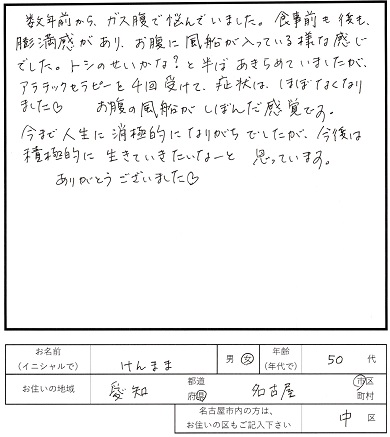 数年前から、ガス腹で悩んでいました。食事前も後も、
膨満感があり、お腹に風船が入っている様な感じ
でした。トシのせいかな？と半ばあきらめていましたが、
アラチックセラピーを4回受けて、症状は、ほぼなくなり
ました♡ お腹の風船がしぼんだ感覚です。
今まで人生に消極的になりがちでしたが、今後は
積極的に生きていきたいなーと思っています。
ありがとうございました♡
お名前
(イニシャルで)
けんまま
男・女
年齢
(年代で)
50 代
お住いの地域
愛知
都道
府県
名古屋
市区
町村
名古屋市内の方は、
お住いの区もご記入下さい
中 区